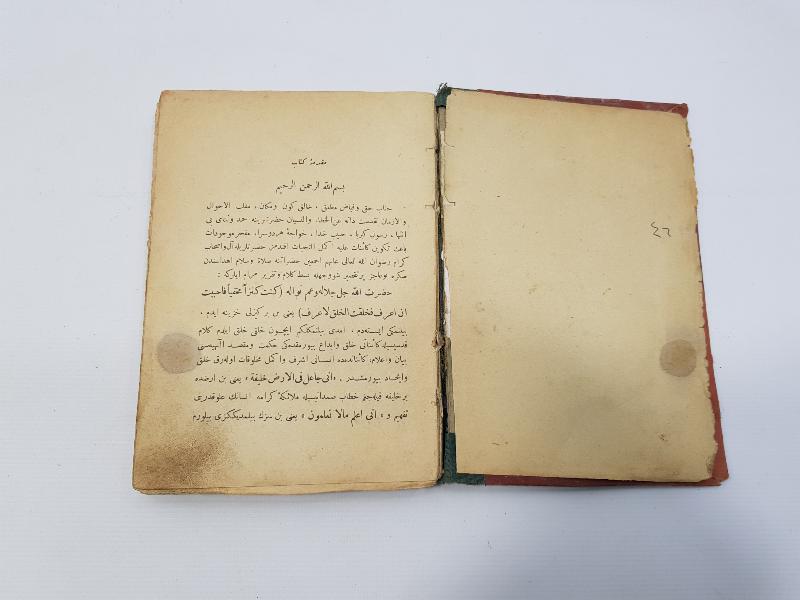 مقدمهٔ كتاب
بسم الله الرحمن الرحيم
جناب حق وفياض مطلق ، خالق كون ومكان ، مقلب الاحوال
والازمان تقدست ذاته عن الخطاء والنسيان حضرتلرينه حمد وثنای بی
انتها ، رسول كبريا ، حبيب خدا ، خواجهٔ هردوسرا ، مفخر موجودات
باعث تكوين كائنات عليه اكمل التحيات افندمز حضرتلريله آل واصحاب
كرام رضوان الله تعالى عليهم اجمعين حضراتنه صلاة وسلام اهداسندن
صكره بوعاجز پرتقصير شووجهله بسط كلام وتقرير مرام ايلركه :
حضرت الله جل جلاله وعم نواله (كنت كنزاً مخفياً فاحببت
ان اعرف فخلقت الخلق لاعرف) يعنى بن بر كيزلى خزينه ايدم .
بيلنمكى ايستهدم . امدى بيلنمكلكم ايچون خلقى خلق ايلدم كلام
قدسيسيله كائناتى خلق وابداع بيورمقدهكى حكمت ومقصد الٓهيسنى
بيان واعلام ، كائناتده انسانى اشرف واكمل مخلوقات اولهرق خلق
وايجاد بيورمشدر . «انى جاعل فى الارض خليفة» يعنى بن ارضده
برخليفه قيلهجغم خطاب صمدانيسيله ملائكهٔ كرامه انسانك علوقدرينى
تفهيم و « انى اعلم مالا تعلمون » يعنى بن سزك بيلمديككزى بيلورم
٤٦